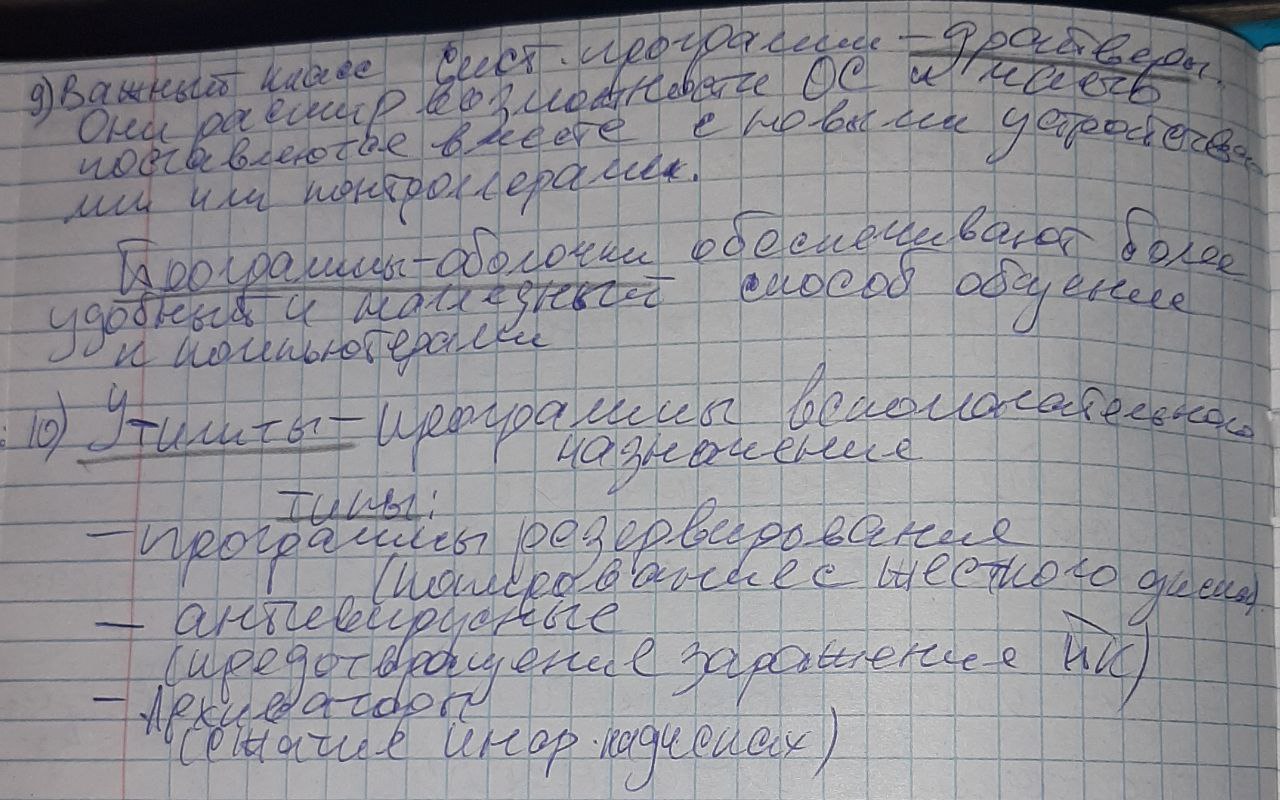 9) Важный класс сист. программ – драйверы.
Они расшир возможности ОС и часть
поставляются вместе с новыми устройства
ми или контроллерами.
Программы-оболочки обеспечивают более
удобный и наглядный способ общения
к компьютерами
10) Утилиты – программы вспомогательного
назначения
типы:
– программы резервирования
(копирование с жесткого диска)
– антивирусные
(предотвращение заражения ПК)
– Архиваторы
(сжатие инфор. на дисках)